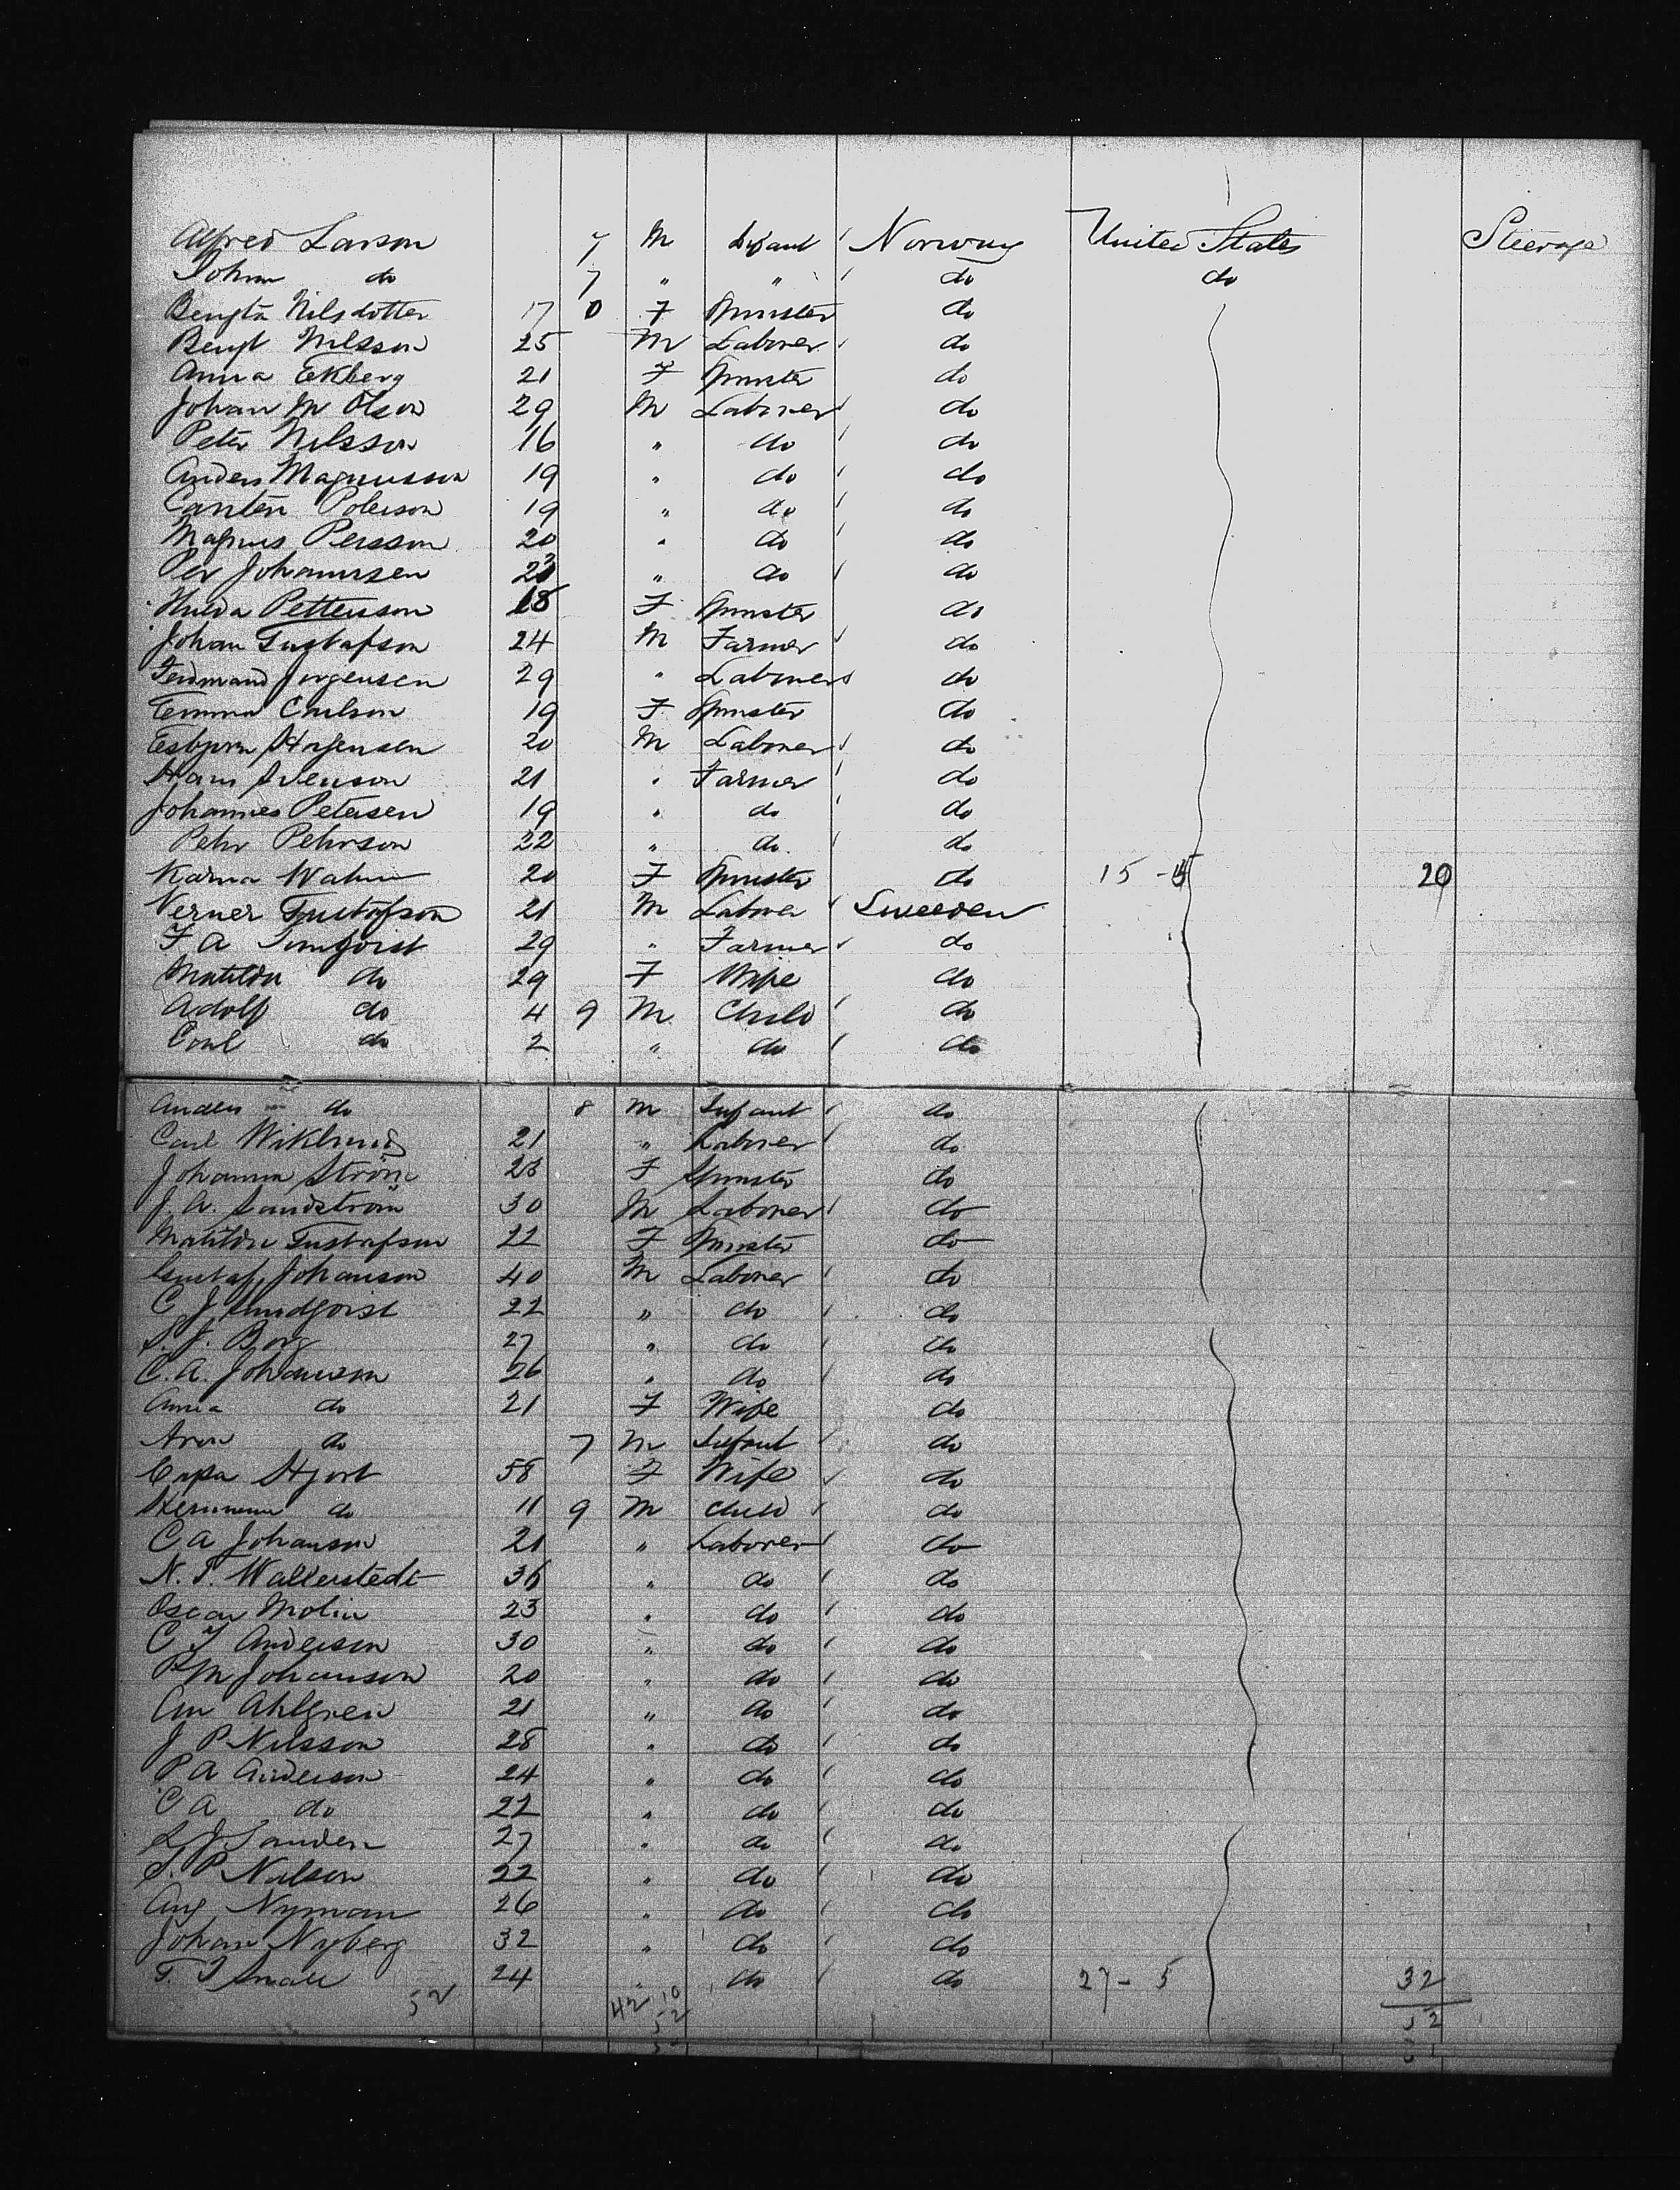 Alfred Larson 7 M Infant Norway United States Steerage
Johan do 7 " " do do
Bengta Nilsdotter 17 0 F Spinster do
Bengt Nilsson 25 M Laborer do
Anna Ekberg 21 F Spinster do
Johan M Olson 29 M Laborer do
Peter Nilsson 16 " do do
Anders Magnusson 19 " do do
Carsten Polerson 19 " do do
Magnus Persson 20 " do do
Per Johannsen 23 " do do
Hulda Petterson 18 F Spinster do
Johan Gustafson 24 M Farmer do
Ferdinand Jorgensen 29 " Laborer do
Emma Carlson 19 F Spinster do
Esbjorn Hogensen 20 M Laborer do
Hans Svenson 21 " Farmer do
Johannes Petersen 19 " do do
Pehr Pehrson 22 " do do
Karna 20 F Spinster do 15 - 5 20
Verner Gustafson 21 M Laborer Sweeden
F A 29 " Farmer do
Matilda do 29 F Wife do
Adolf do 4 9 M Child do
Carl do 2 " do do
Anders do 8 M Infant do
Carl Wiklund 21 " Laborer do
Johanna Ström 23 F Spinster do
J. A. Sandström 30 M Laborer do
Matilda Gustafson 22 F Spinster do
Gustaf Johanson 40 M Laborer do
C J Lundqvist 22 " do do
S. J. Borg 27 " do do
C. A. Johanson 26 " do do
Anna do 21 F Wife do
Aron do 7 M Infant do
Cajsa Hjort 58 F Wife do
Hermann do 11 9 M Child do
C A Johanson 21 " Laborer do
N. P. Wallerstedt 36 " do do
Oscar Molin 23 " do do
C J Anderson 30 " do do
P M Johanson 20 " do do
An Ahlgren 21 " do do
J P Nilsson 28 " do do
P A Anderson 24 " do do
C A do 22 " do do
L J Sanden 27 " do do
S. P. Nilson 22 " do do
Aug Nyman 26 " do do
Johan Nyberg 32 " do do
F. J 24 " do do 27 - 5 32
52 42 10 52
52